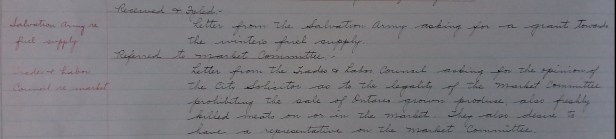 Received & Filed:-
Salvation Army re
fuel supply
Letter from the Salvation Army asking for a grant towards
the winter's fuel supply
Referred to Market Committee:-
Trades & Labor
Council re market
Letter from the Trades & Labor Council asking for the opinion of
the City Solicitor as to the legality of the Market Committee
prohibiting the sale of Ontario grown produce, also freshly
killed meats on or in the market. They also desire to
have a representative on the Market Committee.